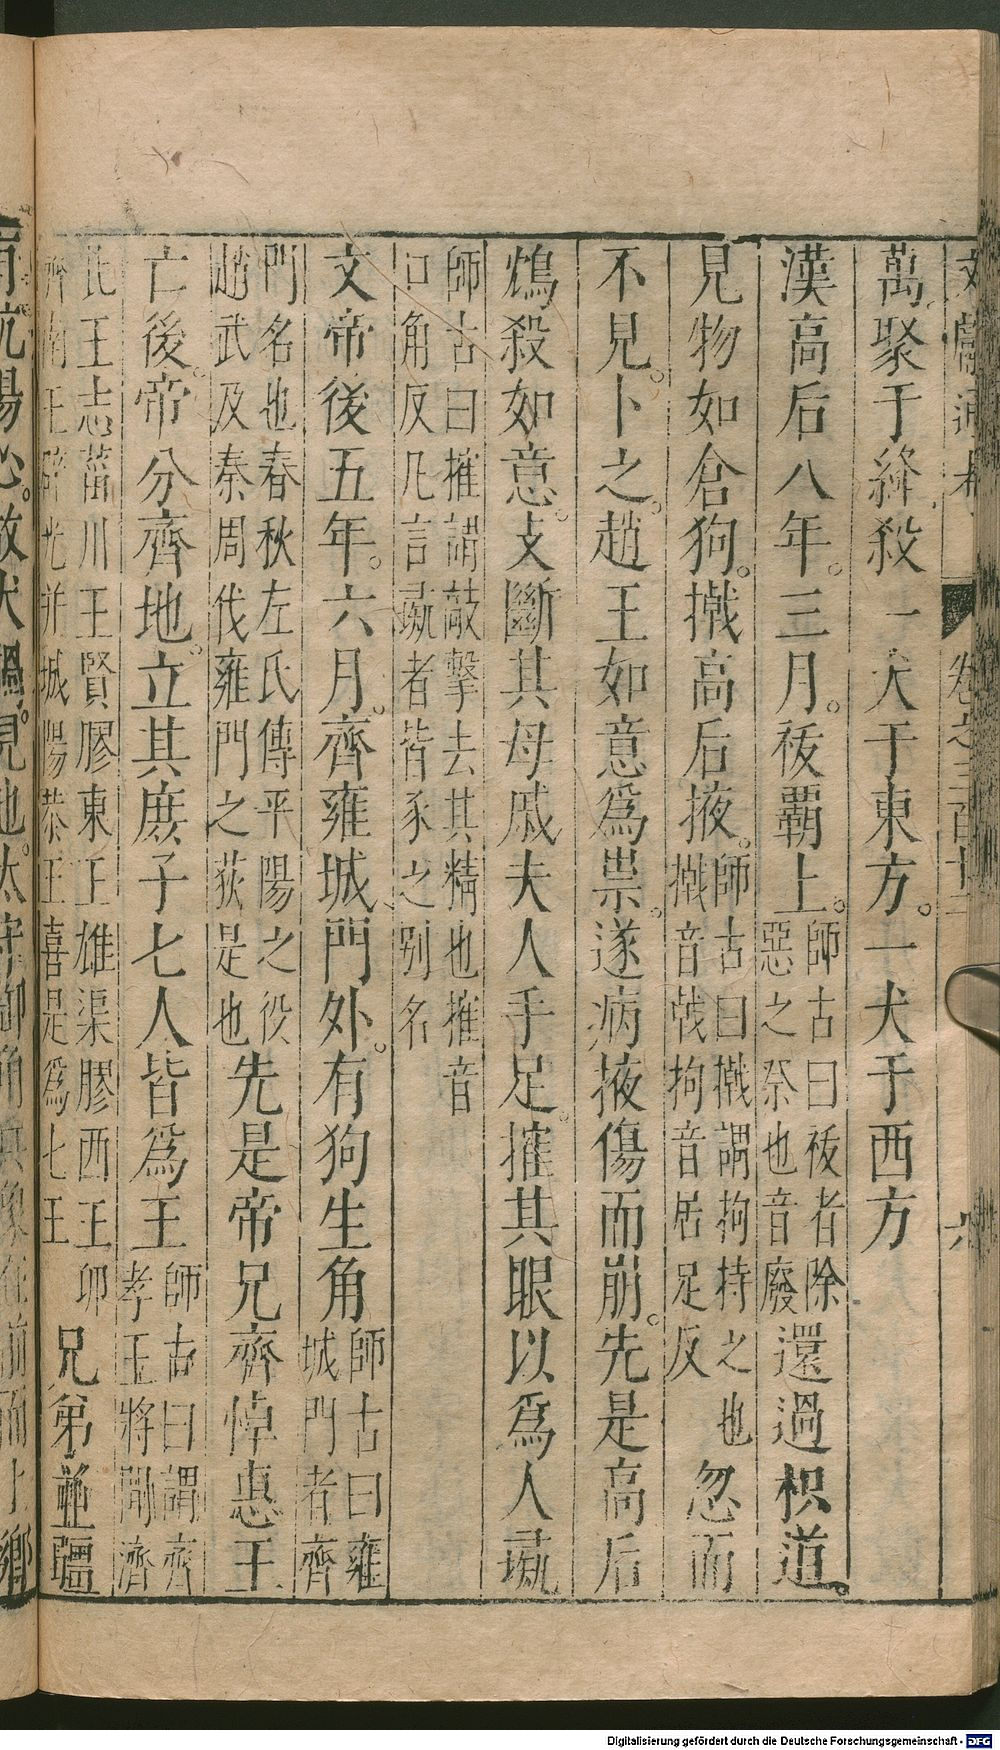 萬聚于絳殺一犬于東方。一犬于西方
漢高后八年。三月。祓霸上。師古曰祓者除惡之祭也音廢還過枳道。
見物如倉狗。撠高后掖。師古曰撠謂拘持之也撠音戟拘音居足反忽而
不見。卜之。趙王如意爲祟。遂病掖傷而崩。先是高后
鴆殺如意。支斷其母戚夫人手足。搉其眼以爲人彘
師古曰搉謂敲擊去其精也搉音口角反凡言彘者皆豕之別名
文帝後五年。六月。齊雍城門外。有狗生角師古曰雍城門者齊
門名也春秋左氏傳平陽之役趙武及秦周伐雍門之荻是也先是帝兄齊悼惠王
亡後。帝分齊地。立其庶子七人皆爲王師古曰謂齊孝王將閭濟
北王志菑川王賢膠東王雄渠膠西王卬濟南王辟光并城陽恭王喜是爲七王兄弟並彊
卷之三百十二
六
Digitalisierung gefördert durch die Deutsche Forschungsgemeinschaft - DFG